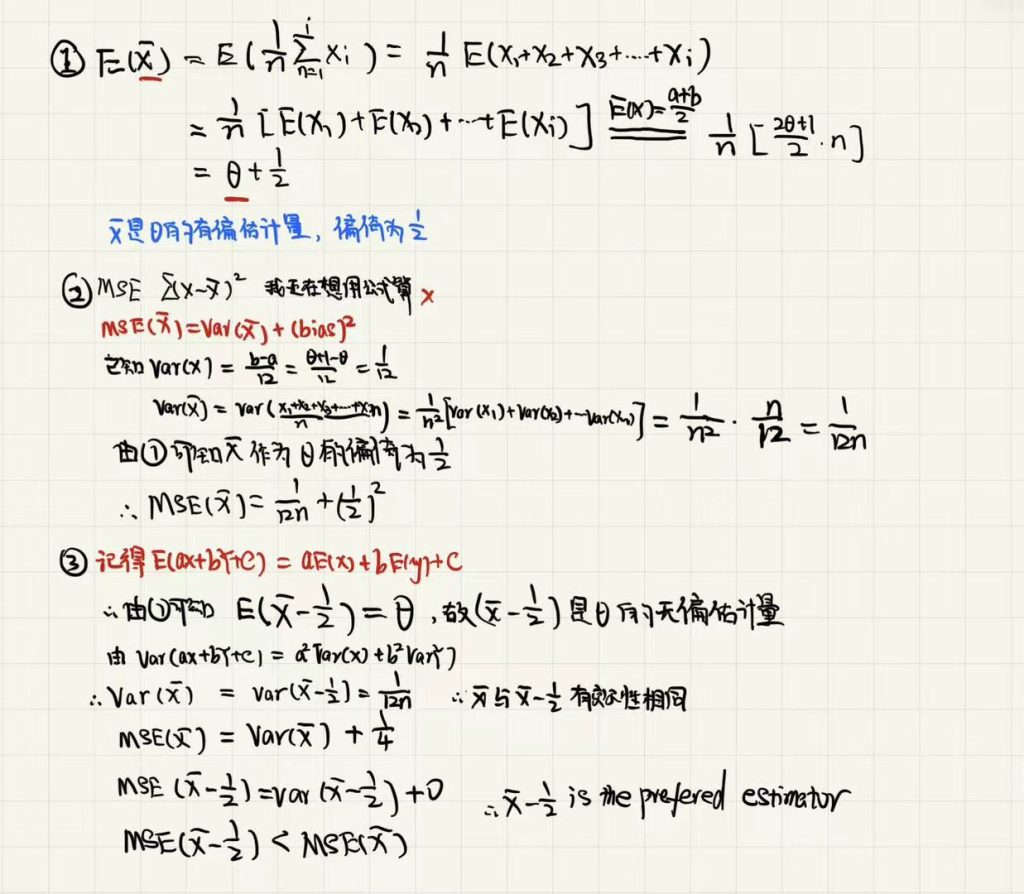 ① E(x̄) = E(1/n Σ_{n=1}^{i} xi) = 1/n E(x₁+x₂+x₃+…+xi)
= 1/n [E(x₁)+E(x₂)+…+E(xi)] E(x)=a+b/2 ═ 1/n [2θ+1/2 · n]
= θ + 1/2
x̄是θ的有偏估计量, 偏倚为1/2
② MSE Σ(x-x̄)² 我还在想用公式算 ×
MSE(x̄)=Var(x̄)+(bias)²
已知 Var(x) = b-a/12 = θ+1-θ/12 = 1/12
Var(x̄) = Var(x₁+x₂+x₃+…+xn/n) = 1/n² [Var(x₁)+Var(x₂)+…Var(xn)] = 1/n² · n/12 = 1/12n
由①可知x̄作为θ的偏倚为1/2
∴ MSE(x̄) = 1/12n + (1/2)²
③ 记得E(ax+bY+C) = aE(x)+bE(y)+C
∴由①可知 E(x̄-1/2) = θ, 故(x̄-1/2)是θ的无偏估计量
由 Var(ax+bY+c) = a²Var(x)+b²Var(Y)
∴Var(x̄) = Var(x̄-1/2) = 1/12n ∴x̄与x̄-1/2有效性相同
MSE(x̄) = Var(x̄) + 1/4
MSE(x̄-1/2)=Var(x̄-1/2)+0 ∴x̄-1/2 is the prefered estimator
MSE(x̄-1/2) < MSE(x̄)